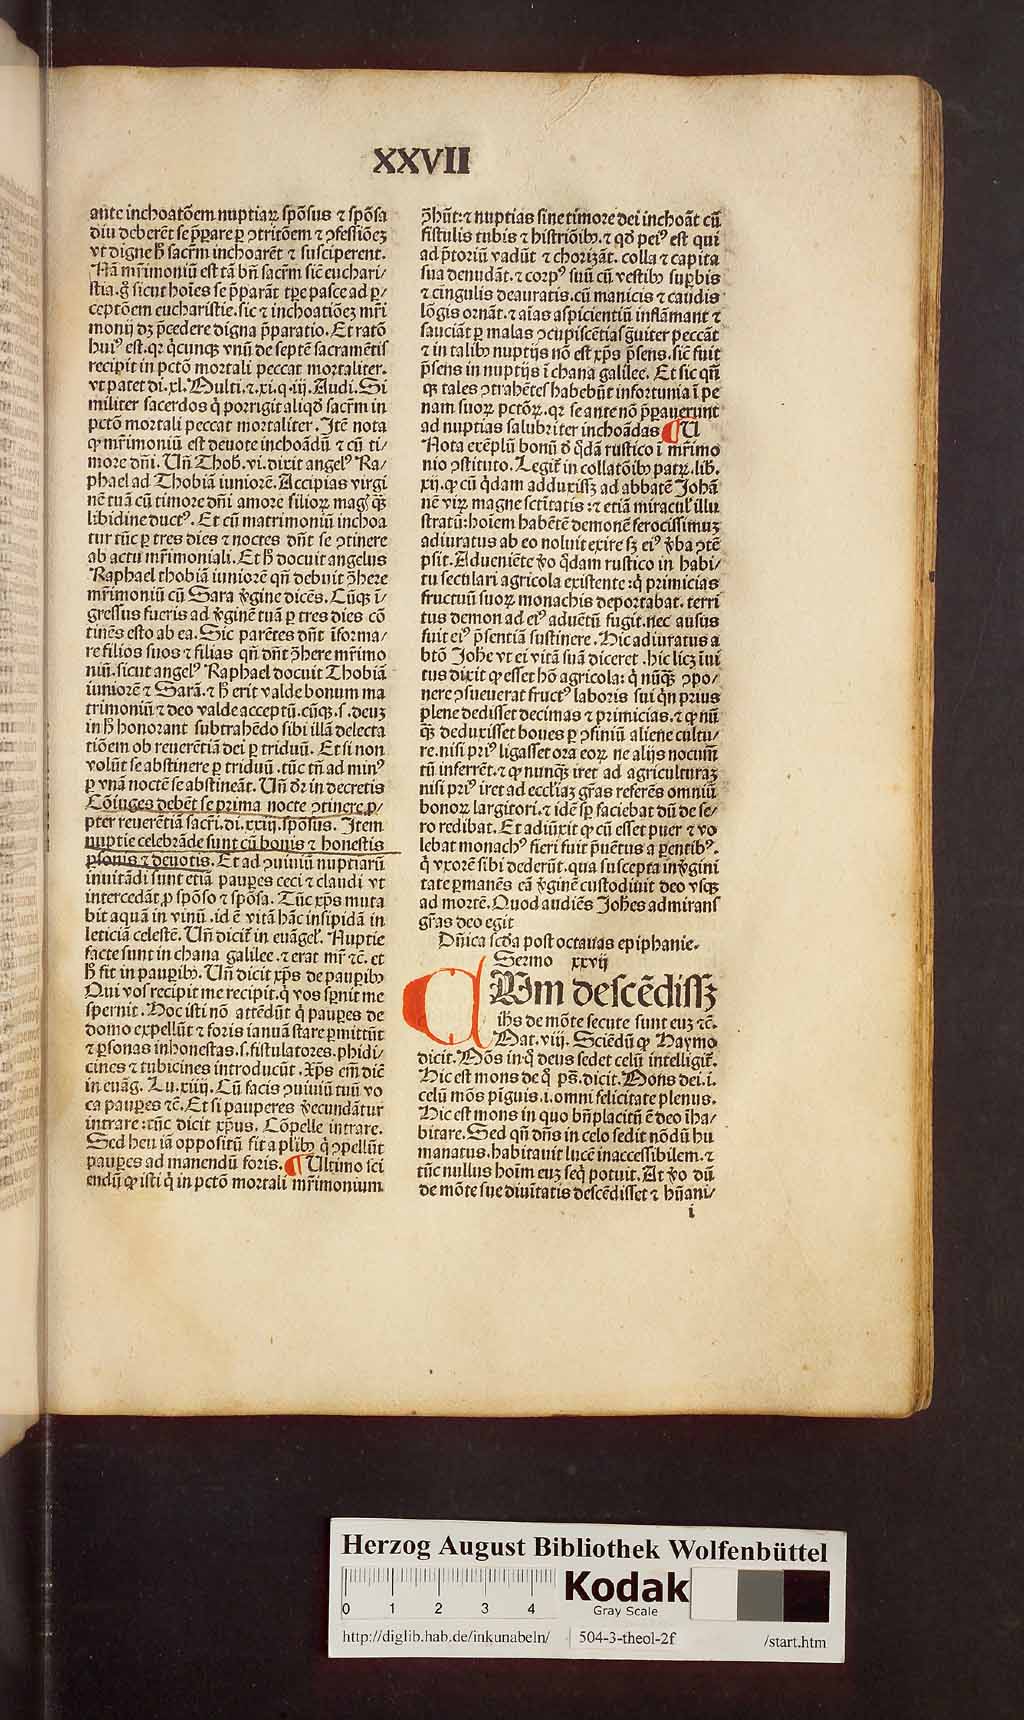 XXVII
ante inchoatõem nuptiaꝝ spõsus ⁊ spõsa
diu deberẽt se p̃parare ꝑ ↄtritõem ⁊ ↄfessiõeʒ
vt digne h̾ sacr̃m inchoarẽt ⁊ susciperent.
Nã mr̃imoniũ est tã bñ sacr̃m sic̃ euchari/
stia. g̾ sicut hoĩes se p̃parãt tp̃e pasce ad ꝑ/
ceptõem eucharistie. sic ⁊ inchoatiõeʒ mr̃i
monij dʒ p̃cedere digna p̃paratio. Et ratõ
huiꝰ est. qꝛ q̃cunqꝫ vnũ de septẽ sacramẽtis
recipit in pctõ mortali peccat mortaliter.
vt patet di. xl. Multi. ⁊. xi. q. iij. Audi. Si
militer sacerdos q̃ porrigit aliqd̾ sacr̃m in
pctõ mortali peccat mortaliter. Itẽ nota
ꝙ mr̃imoniũ est deuote inchoãdũ ⁊ cũ ti/
more dñi. Uñ Thob. vi. dixit angelꝰ Ra/
phael ad Thobiã iuniorẽ. Accipias virgi
nẽ tuã cũ timore dñi amore filioꝝ mag̾ qꝫ̃
libidine ductꝰ. Et cũ matrimoniũ inchoa
tur tũc ꝑ tres dies ⁊ noctes dñt se ↄtinere
ab actu mr̃imoniali. Et h̾ docuit angelus
Raphael thobiã iuniorẽ qñ debuit ↄ̃here
mr̃imoniũ cũ Sara v̾ginẽ dicẽs. Cũqꝫ ĩ/
gressus fueris ad v̾ginẽ tuã ꝑ tres dies cõ
tinẽs esto ab ea. Sic parẽtes dñt ĩforma/
re filios suos ⁊ filias qñ dñt ↄ̃here mr̃imo
niũ. sicut angelꝰ Raphael docuit Thobiã
iuniorẽ ⁊ Sarã. ⁊ h̾ erit valde bonum ma
trimoniũ ⁊ deo valde acceptũ. cũqꝫ. s. deuʒ
in h̾ honorant subtrahẽdo sibi illã delecta
tiõem ob reuerẽtiã dei ꝑ triduũ. Et si non
volũt se abstinere ꝑ triduũ. tũc tñ ad minꝰ
ꝑ vnã noctẽ se abstineãt. Uñ dr̃ in decretis
Cõiuges debẽt se prima nocte ↄtinere ꝓ/
pter reuerẽtiã sacr̃i. di. xxiij. spõsus. Item
nuptie celebrãde sunt cũ bonis ⁊ honestis
ꝑsonis ⁊ deuotis. Et ad ↄuiuiũ nuptiarũ
inuitãdi sunt etiã pauꝑes ceci ⁊ claudi vt
intercedãt ꝓ spõso ⁊ spõsa. Tũc xp̃s muta
bit aquã in vinũ. id ẽ vitã hãc insipidã in
leticiã celestẽ. Uñ dicit̃ in euãgel̾. Nuptie
facte sunt in chana galilee. ⁊ erat mr̃ ⁊c̃. et
h̾ fit in pauꝑibꝫ. Uñ dicit xp̃s de pauꝑibꝫ
Qui vos recipit me recipit. q̃ vos sp̱nit me
spernit. Hoc isti nõ attẽdũt q̃ pauꝑes de
domo expellũt ⁊ foris ianuã stare ꝑmittũt
⁊ ꝑsonas inhonestas. s. fistulatores. phidi/
cines ⁊ tubicines introducũt. Xp̃s em̃ dic̃
in euãg. Lu. xiiij. Cũ facis ↄuiuiũ tuũ vo
ca pauꝑes ⁊c̃. Et si pauperes v̾ecundãtur
intrare: tũc dicit xp̃us. Cõpelle intrare.
Sed heu iã oppositũ fit a plibꝫ q̃ ↄpellũt
pauꝑes ad manendũ foris. ¶ Ultimo sci
endũ ꝙ isti q̃ in pctõ mortali mr̃imonium
ↄ̃hũt: ⁊ nuptias sine timore dei inchoãt cũ
fistulis tubis ⁊ histriõibꝫ. ⁊ qd̾ peiꝰ est qui
ad p̃toriũ vadũt ⁊ chorizãt. colla ⁊ capita
sua denudãt. ⁊ corpꝰ suũ cũ vestibꝫ suꝑbis
⁊ cingulis deauratis. cũ manicis ⁊ caudis
lõgis ornãt. ⁊ aĩas aspicientiũ inflãmant ⁊
sauciãt ꝑ malas ↄcupiscẽtias g̃uiter peccãt
⁊ in talibꝫ nuptijs nõ est xp̃s p̃sens. sic̃ fuit
p̃sens in nuptijs ĩ chana galilee. Et sic qñ
qꝫ tales ↄtrahẽtes habebũt infortunia ĩ pe
nam suoꝝ pctõꝝ. qꝛ se ante nõ p̃parauerunt
ad nuptias salubriter inchoãdas ¶ U
Nota exẽplũ bonũ d̾ q̃dã rustico ĩ mr̃imo
nio ↄstituto. Legit̃ in collatõibꝫ patꝝ. lib.
xij. ꝙ cũ q̃dam adduxissʒ ad abbatẽ Johã
nẽ viꝝ magne sctĩtatis: ⁊ etiã miracul̾ illu
stratũ: hoĩem habẽtẽ demonẽ ferocissimuʒ
adiuratus ab eo noluit exire sʒ eiꝰ v̾ba ↄtẽ
psit. Adueniẽte v̾o q̃dam rustico in habi/
tu seculari agricola existente: q̃ primicias
fructuũ suoꝝ monachis deportabat. terri
tus demon ad eiꝰ aduẽtũ fugit. nec ausus
fuit eiꝰ p̃sentiã sustinere. Hic adiuratus a
btõ Johe vt ei vitã suã diceret. hic licʒ ĩui
tus dixit ꝙ esset hõ agricola: q̃ nũqꝫ̃ ↄpo/
nere ↄsueuerat fructꝰ laboris sui q̃n prius
plene dedisset decimas ⁊ primicias. ⁊ ꝙ nũ
qꝫ̃ deduxisset boues ꝑ ↄfiniũ aliene cultu/
re. nisi priꝰ ligasset ora eoꝝ ne alijs nocum̃
tũ inferrẽt. ⁊ ꝙ nunqꝫ̃ iret ad agriculturaʒ
nisi priꝰ iret ad eccl̃iaʒ gr̃as referẽs omniũ
bonoꝝ largitori. ⁊ idẽ sꝑ faciebat dũ de se/
ro redibat. Et adiũxit ꝙ cũ esset puer ⁊ vo
lebat monachꝰ fieri fuit p̃uẽtus a ꝑentibꝰ.
q̃ vxorẽ sibi dederũt. qua suscepta in v̾gini
tate ꝑmanẽs eã v̾ginẽ custodiuit deo vsqꝫ
ad mortẽ. Quod audiẽs Johes admirans
gr̃as deo egit
Dñica scd̾a post octauas epiphanie.
Sermo xxvij
CUm descẽdissʒ
ihs de mõte secute sunt euʒ ⁊c̃.
Mat. viij. Sciẽdũ ꝙ Haymo
dicit. Mõs in q̃ deus sedet celũ intelligit̃.
Hic est mons de q̃ ps̃. dicit. Mons dei. i.
celũ mõs piguis. i. omni felicitate plenus.
Hic est mons in quo bñplacitũ ẽ deo ĩha/
bitare. Sed qñ dñs in celo sedit nõdũ hu
manatus. habitauit lucẽ inaccessibilem. ⁊
tũc nullus hoĩm euʒ seq̃ potuit. At v̾o dũ
de mõte sue diuĩtatis descẽdisset ⁊ hũani/
i
Herzog August Bibliothek Wolfenbüttel
0 1 2 3 4
Kodak
Gray Scale
http://diglib.hab.de/inkunabeln/ 504-3-theol-2f /start.htm